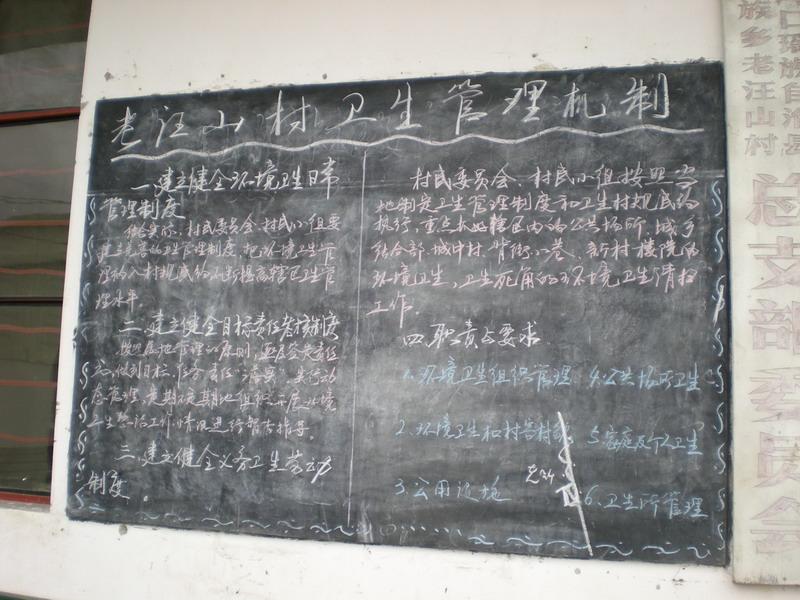 老汪山村卫生管理机制
一、建立健全环境卫生日常
管理制度
做实际,村民委员会、村民小组要
建立完善的卫生管理制度,把环境卫生管
理纳入村规民约,不断提高辖区卫生管
理水平。
二、建立健全目标责任考核制度
按照属地管理的原则,层层负责任
制,做到目标、任务、责任“落实”,实行动
态管理,定期不定期地组织开展环境
卫生整治工作情况进行督查指导。
三、建立健全义务卫生劳动
制度。
村民委员会、村民小组按照当
地制定卫生管理制度和卫生村规民约
执行,重点办好辖区内的公共场所、城乡
结合部、城中村、背街小巷、新村楼院的
环境卫生,卫生死角的环境卫生清扫
工作。
四、职责与要求
1.环境卫生组织管理 4.公共场所卫生
2.环境卫生和村容村貌 5.家庭及个人卫生
3.公用设施 6.卫生所管理
口瑶族自治县
族乡老汪山村
总支部委员会